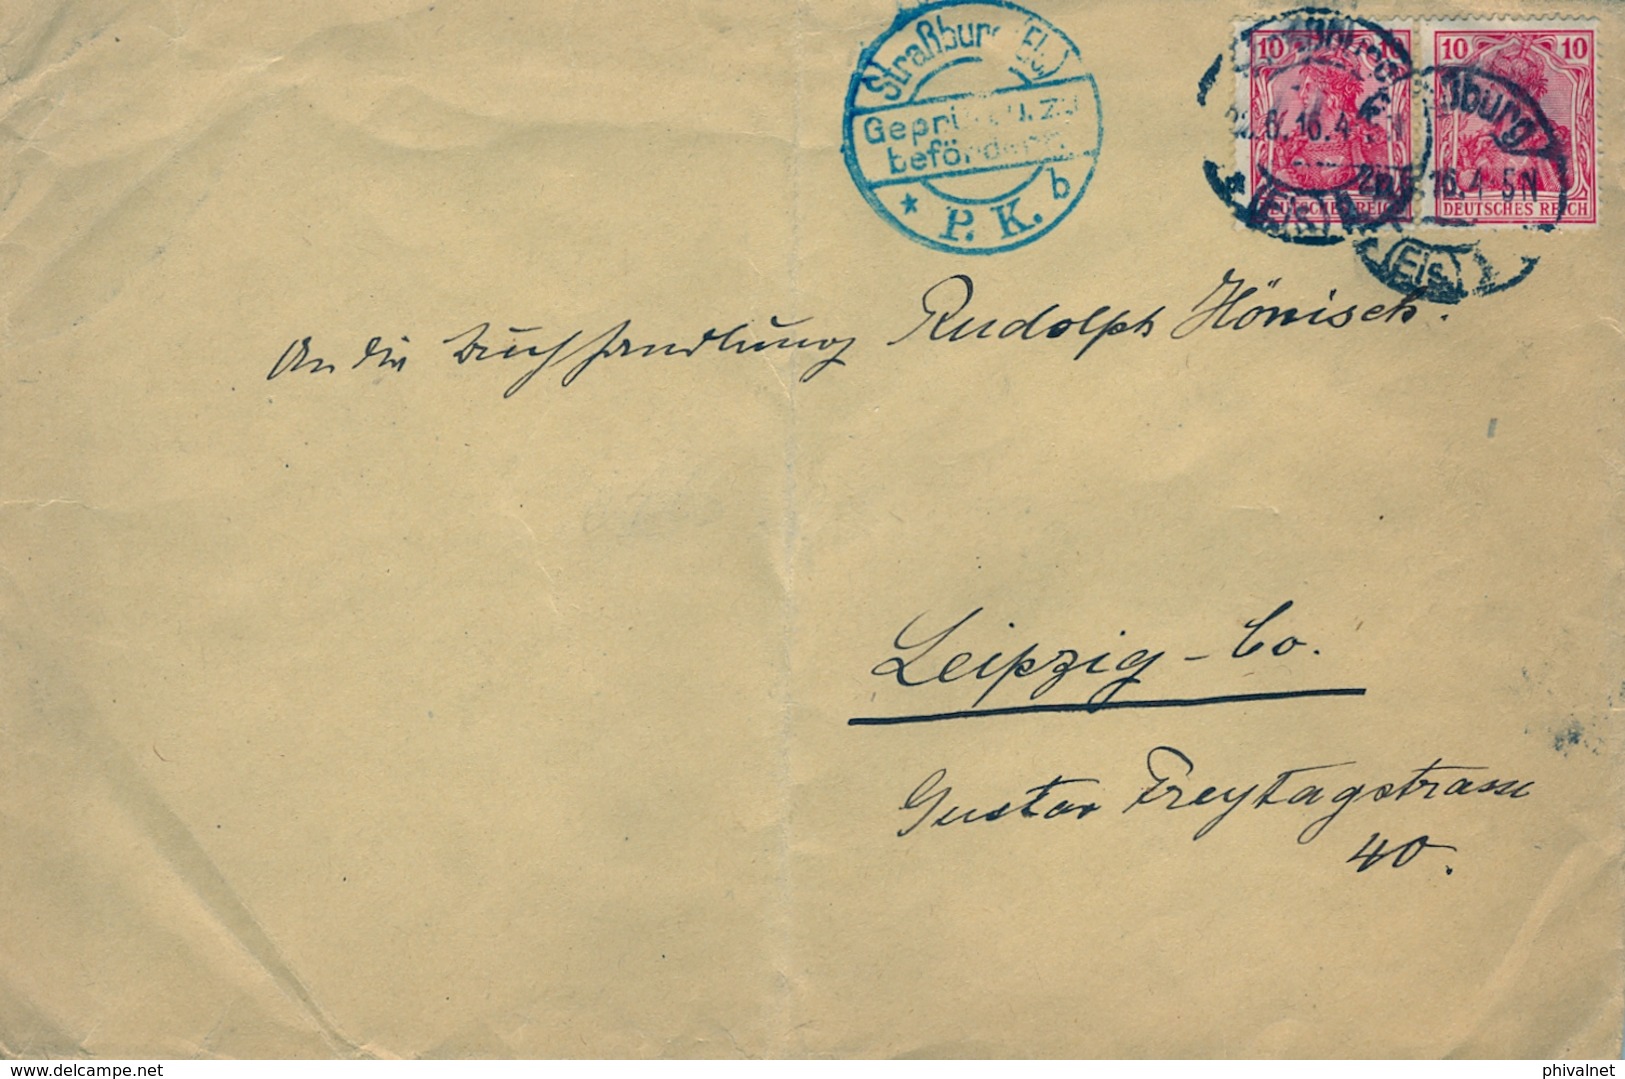 Straßburg (Els.)
Geprüft u. zu
befördern
* P. K. b
10 10
DEUTSCHES REICH
10 10
DEUTSCHES REICH
Straßburg
.6.16.4-5N
(Els.)
An die Buchhandlung Rudolph Hönisch.
Leipzig - Co.
Gustav Freytagstrasse
40.
delcampe.net
phivalnet